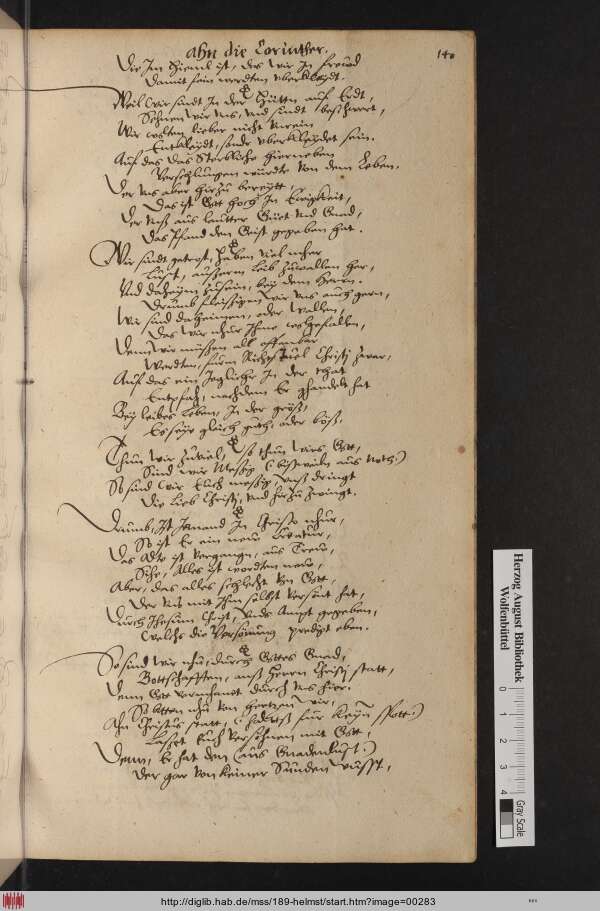 ahn die Corinther.
140
Die Im Himel ist, des wir In freud
Damit sein werdten vberkleydt.
Weil wir sindt In der Hüttn auf Erdt,
Sehnen wir vns, vnd sindt beschwert,
Wir wolten lieber nicht
Entkleydt, sondr vberkleydet sein.
Auf das das Sterbliche hierneben
Verschlungen würdte von dem Leben.
Der vns aber hirzu bereytt,
Das ist Gott hoch In Ewigkeit,
Der vnß aus lautter Güet vnd Gnad,
Das Pfand den Geist gegeben hat.
Wir sindt getrost, haben viel mher
Lust, ausserm leib zuwallen her,
Vnd daheym zusein, bey dem Herrn.
Drumb fleissigen wir vns auch gern,
Wir sind daheimen, oder wallen,
Das wir nhur Ihme wolgefallen,
Denn wir müssen all offenbar
Werdten, fürm Richtstuel Christj zwar,
Auf das ein Jeglicher In der that
Entpfah, nachdem Er ghandelt hat
Bey leibes Leben, In der
Es seye gleich guth, oder böß.
Thun wir zuviel, so thun wirs Gott,
Sind wir Messig (bißweiln aus Noth)
So sind wir Euch messig, vnß dringt
Die lieb Christj, vnd hirzu zwingt.
Drumb, Ist Jemand In Christo nhur,
So ist Er ein neue Creatur,
Das Alte ist vergangn, aus Treu,
Sihe, Alles ist wordten neue,
Aber, das alles schlecht von Gott,
Der vns mit Ihm selbst versönt hat,
Durch Jhesum Christ, vnds Ampt gegeben,
Welchs die Versönung predigt eben.
So sind wir nhu, durch Gottes Gnad,
Bottschafften, anß Herrn Christj statt,
Denn Gott vermhanet durch vns hier.
So bitten nhu von hertzen wir,
Ahn Christus statt, (halts für keyn spott)
Lasset Euch versöhnen mit Gott,
Denn, Er hat den (aus Gnadenlust)
Der gar von keiner Sünden wusst,
Herzog August Bibliothek
Wolfenbüttel
0 1 2 3 4
Gray Scale
http://diglib.hab.de/mss/189-helmst/start.htm?image=00283